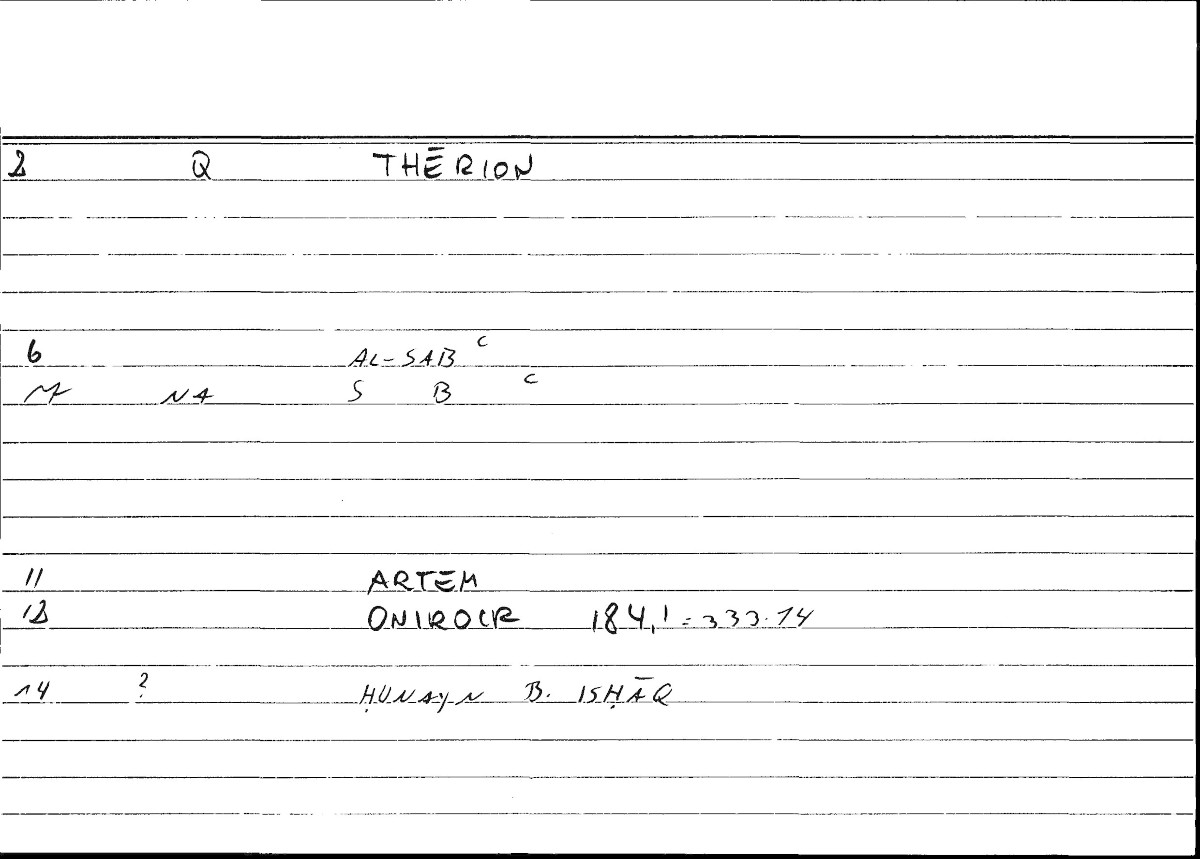 2 Q THĒRION
6 AL-SABʿ
NA S B ʿ
11 ARTEM
12 ONIROCR 184,1 = 333.14
14 ? ḤUNAYN B. ISḤĀQ